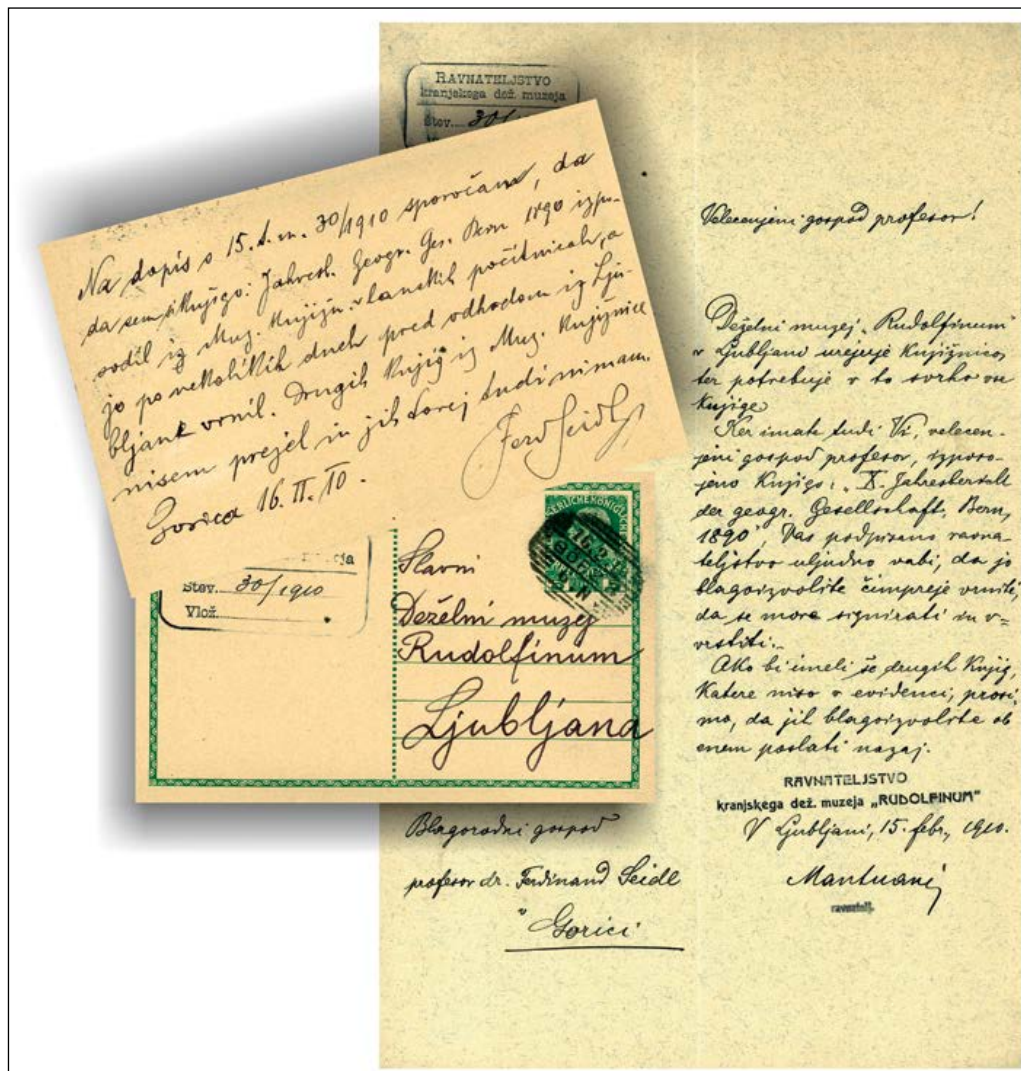 RAVNATELJSTVO
kranjskega dež. muzeja
Štev. 30/
Na dopis s 15. t. m. 30/1910 sporočam, da
da sem knjigo: Jahresb. Geogr. Ges. Bern 1890 izpo-
sodil iz Muz. Knjižn. v lanskih počitnicah, a
jo po nekolikih dneh pred odhodom iz Lju-
bljane vrnil. Drugih knjig iz Muz. Knjižnice
nisem prejel in jih torej tudi nimam.
Ferd Seidl
Gorica 16. II. 10.
Štev. 30/1910
Vlož.
Slavni
Deželni muzej
Rudolfinum
Ljubljana
Velecenjeni gospod profesor!
Deželni muzej „Rudolfinum"
v Ljubljani urejuje knjižnico,
ter potrebuje v to svrho vse
knjige.
Ker imate tudi Vi, velecen-
jeni gospod profesor, izposo-
jeno knjigo: „X. Jahresbericht
der geogr. Gesellschaft, Bern,
1890", Vas podpisano ravna-
teljstvo uljudno vabi, da jo
blagoizvolite čimpreje vrniti,
da se more signirati in v-
vrstiti.
Ako bi imeli še drugih knjig,
katere niso v evidenci, prosi-
mo, da jih blagoizvolite ob
enem poslati nazaj.
RAVNATELJSTVO
kranjskega dež. muzeja „RUDOLFINUM"
V Ljubljani, 15. febr., 1910.
Mantuani
ravnatelj.
Blagorodni gospod
profesor dr. Ferdinand Seidl
v Gorici